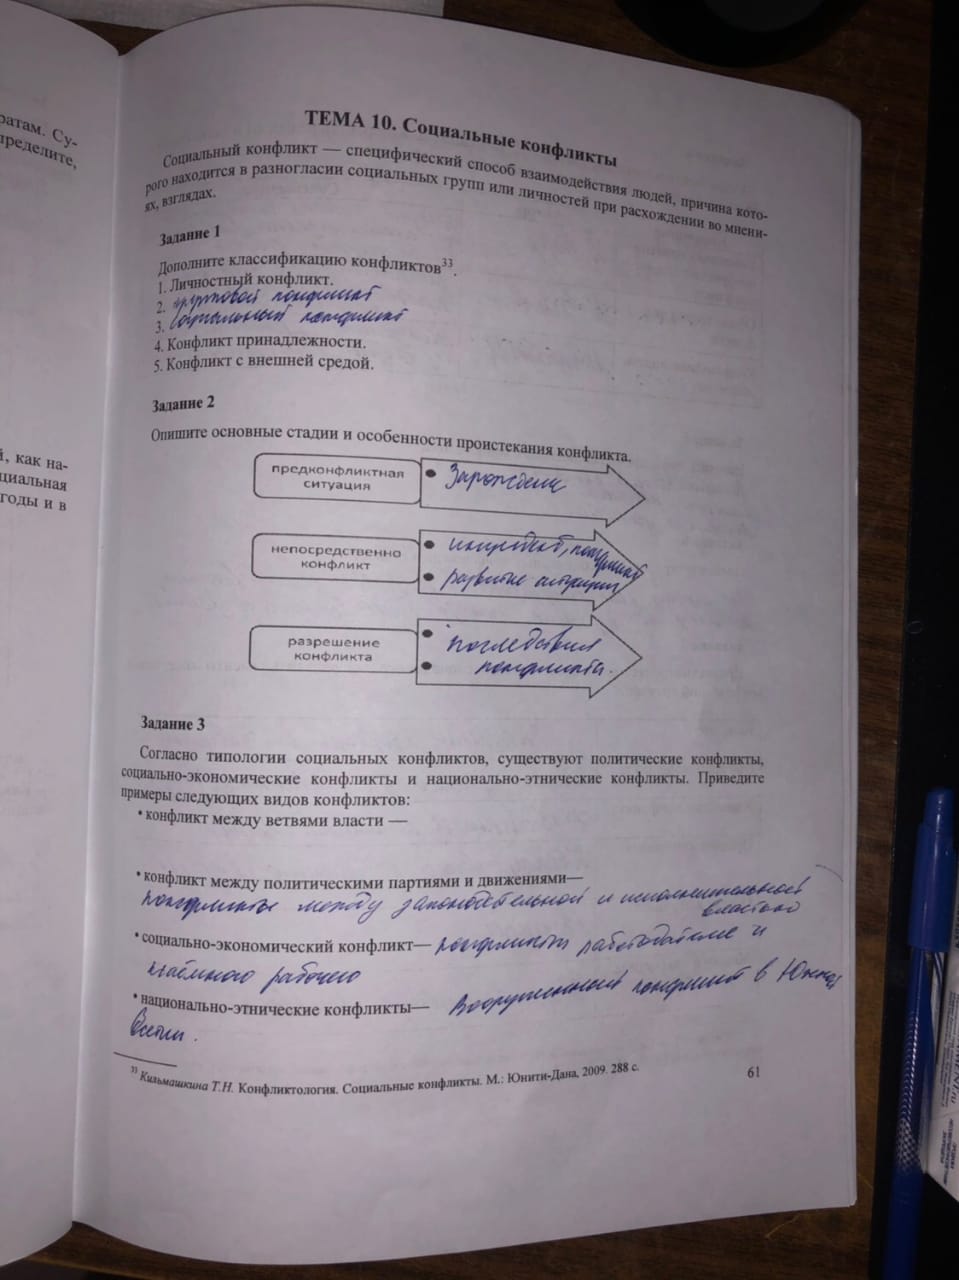 ратам. Су-
пределите,
й, как на-
циальная
годы и в
ТЕМА 10. Социальные конфликты
Социальный конфликт — специфический способ взаимодействия людей, причина кото-
рого находится в разногласии социальных групп или личностей при расхождении во мнени-
ях, взглядах.
Задание 1
Дополните классификацию конфликтов33.
1. Личностный конфликт.
2. групповой конфликт
3. социальный конфликт
4. Конфликт принадлежности.
5. Конфликт с внешней средой.
Задание 2
Опишите основные стадии и особенности проистекания конфликта.
предконфликтная
ситуация
• Зарождение
непосредственно
конфликт
• инцидент, конфликт
• развитие ситуации
разрешение
конфликта
• последствия
• конфликта.
Задание 3
Согласно типологии социальных конфликтов, существуют политические конфликты,
социально-экономические конфликты и национально-этнические конфликты. Приведите
примеры следующих видов конфликтов:
• конфликт между ветвями власти —
• конфликт между политическими партиями и движениями—
конфликты между законодательной и исполнительной
властью
• социально-экономический конфликт— конфликт работодателя и
наёмного рабочего
• национально-этнические конфликты— Вооруженный конфликт в Южной
Осетии.
33 Кильмашкина Т.Н. Конфликтология. Социальные конфликты. М.: Юнити-Дана, 2009. 288 с.
61